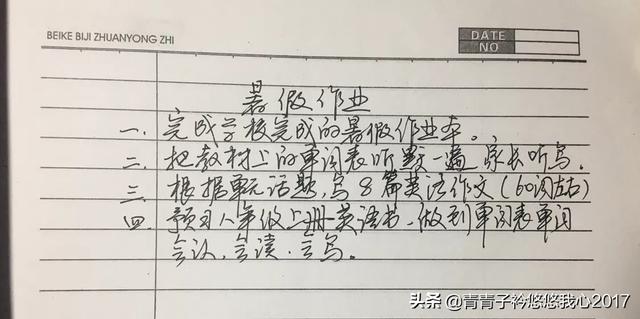 BEIKE BIJI ZHUANYONG ZHI
DATE
NO
暑假作业
一、完成学校完成的暑假作业本。
二、把教材上的单词表听默一遍,家长听写。
三、根据单元话题,写8篇英语作文(60词左右)
四、预习八年级上册英语书,做到单词表单词
会认、会读、会写。
头条 @青青子衿悠悠我心2017